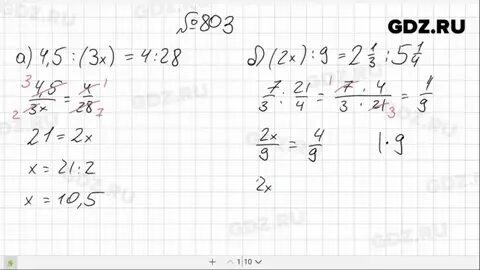 №803
GDZ.RU
а) 4,5 : (3x) = 4 : 28
3 4,5/3x = 4/28 1
2 7
21 = 2x
x = 21 : 2
x = 10,5
б) (2x) : 9 = 2 1/3 : 5 1/4
7/3 : 21/4 = 7 · 4/3 · 21 = 4/9
1 3
2x/9 = 4/9 | · 9
2x
1 10